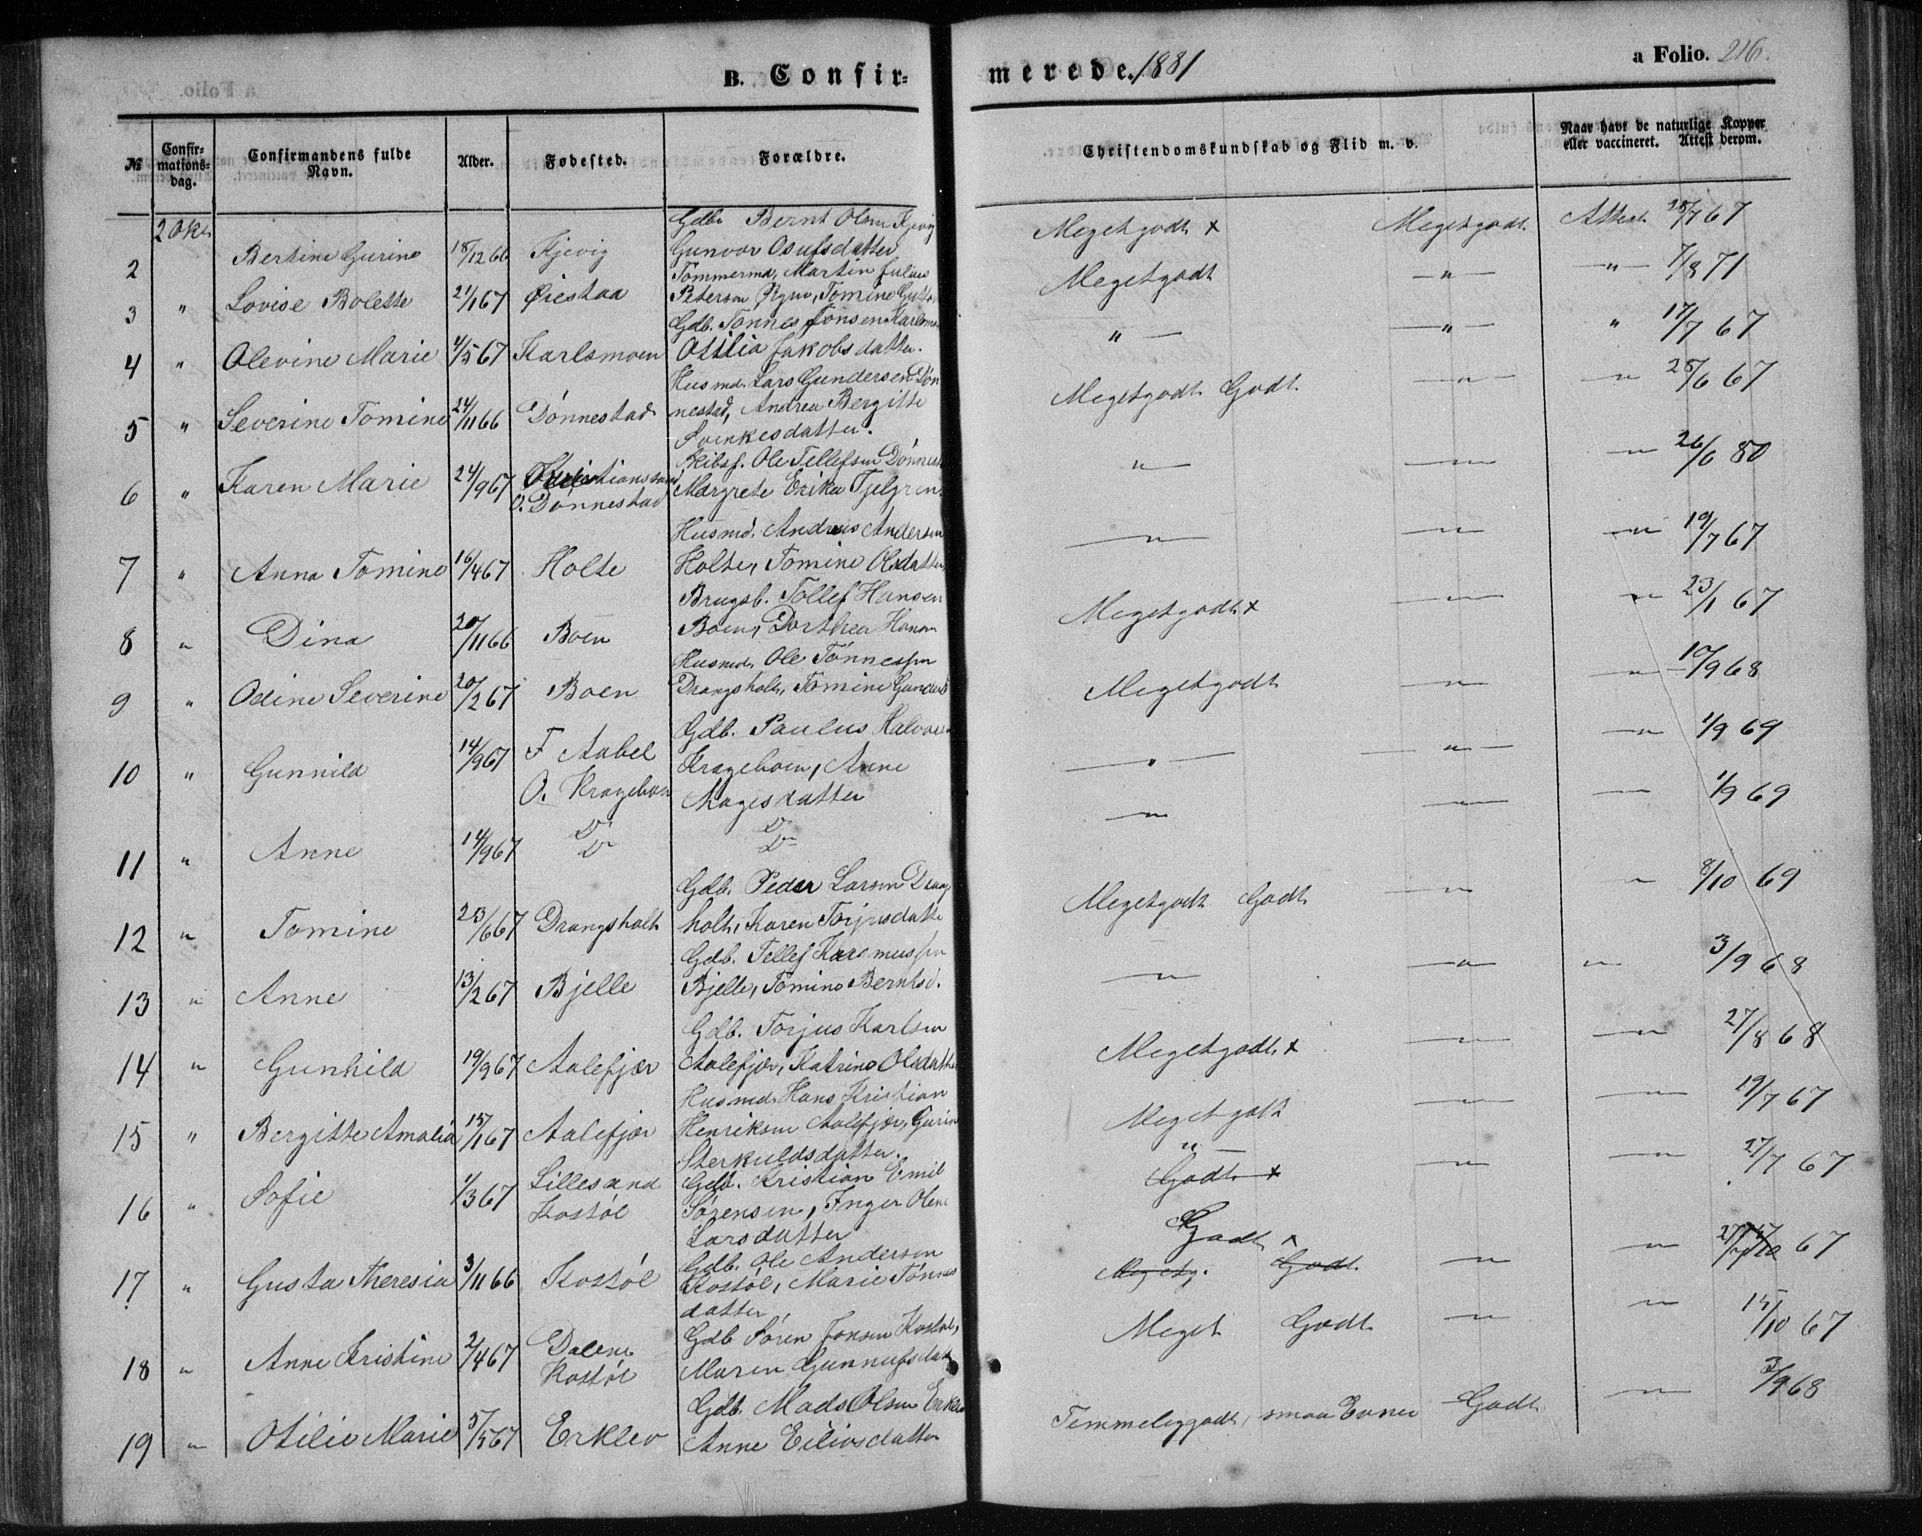 B. Confir-
merede. 1881
a Folio. 216.
№
Confir-
mations-
dag.
Confirmandens fulde
Navn.
Alder.
Fødested.
Forældre.
Christendomskundskab og Flid m. v.
Naar havt de naturlige Kopper
eller vaccineret. Attest derom.
2 Okt.
Gdb. Bernt Olsen Kjevig
2 Bertine Gurine 18/12 66 Kjevig Gunvor Osufsdatter Megetgodt x Megetgodt Attest 28/7 67
Tømmermd. Martin Julius
3 " Lovise Bolette 21/1 67 Øiestad Petersen Tomine Megetgodt —"— —"— 7/8 71
Gdb. Tønnes Jonsen Karlsmoen
4 " Olevine Marie 4/5 67 Karlsmoen Otilia Jakobsdatter. "— —"— " 17/7 67
Husmd. Lars Gundersen Døn
5 " Severine Tomine 24/11 66 Dønnestad nestad, Andrea Bergitte Megetgodt Godt —"— —"— 28/6 67
Svenkesdatter.
Skibsf. Ole Tellefsen Dønnes
6 " Karen Marie 24/9 67 Kristianssand Margrete Erika Tjelgren —"— —"— —"— 26/6 80
O. Dønnestad
Husmd. Andreas Andersen
7 " Anna Tomine 16/4 67 Holte Holte, Tomine Olsdatter —"— —"— —"— 19/7 67
Brugsb. Tollef Hansen
8 " Dina 20/11 66 Boen Boen, Dorthea Hansen Megetgodt x —"— —"— 23/1 67
Husmd. Ole Tønnessen
9 " Odine Severine 20/2 67 Boen Drangsholt, Tomine Gunders Megetgodt —"— —"— 10/9 68
Gdb. Paulus Halvorsen
10 " Gunnild 14/9 67 F Aabel Krageboen, Anne —"— —"— —"— 1/9 69
O. Krageboen Aagesdatter
11 " Anne 14/9 67 Do Do —"— —"— —"— 1/9 69
Gdb. Peder Larsen Drangs
12 " Tomine 23/6 67 Drangsholt holt, Karen Torjusdatte Megetgodt Godt —"— " 8/10 69
Gdb. Tellef Rasmussen
13 " Anne 13/2 67 Bjelle Bjelle, Tomine Berntsd. —"— —"— —"— 3/9 68
Gdb. Torjus Karlsen
14 " Gunhild 19/9 67 Aalefjær Aalefjær, Katrine Olsdatte Megetgodt x —"— —"— 27/8 68
Husmd. Hans Kristian
15 " Bergitte Amalia 15/1 67 Aalefjær Henriksen Aalefjær, Gurin Megetgodt —"— —"— 19/7 67
Sterkuldsdatter. "—
16 " Sofie 1/3 67 Lillesand Gdb. Kristian Emil Godt x —"— —"— 27/7 67
Kostøl Sørensen, Inger Olene
Larsdatter
Gdb. Ole Andersen Godt x
17 " Gusta Theresia 3/11 66 Kostøl Kostøl, Marie Tønnes Megetg. Godt —"— —"— 67
datter
Gdb Søren Jonsen Kostøl,
18 " Anne Kristine 2/4 67 Dalene Maren Gunnufsdatt Meget Godt —"— —"— 15/10 67
Kostøl
Gdb. Mads Olsen Erklev
19 " Otilie Marie 5/5 67 Erklev Anne Eilivsdatter Temmeliggodt, smaa Evner Godt —"— 3/9 68